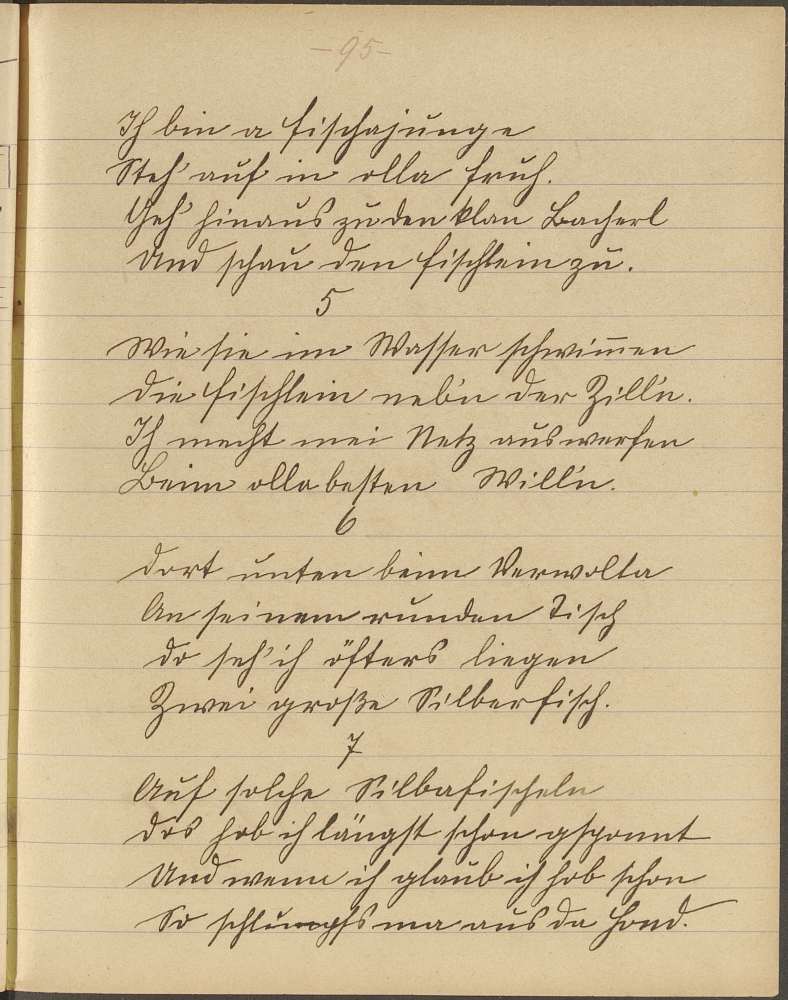 -95-
Ich bin a Fischajunge
Steh' auf in olla fruh.
Geh' hinaus zu den klan Bacherl
Und schau den Fischlein zu.
5
Wie sie im Wasser schwim̅en
Die Fischlein neb'n der Zill'n.
Ich mecht mei Netz auswerfen
Beim olla besten Will'n.
6
Dort unten beim Verwolta
An seinem runden Tisch
Do seh' ich öfters liegen
Zwei große Silberfisch.
7
Auf solche Silbafischeln
Dos hob ich längst schon gsponnt
Und wenn ich glaub ich hob schon
So schlumpfs ma aus da Hond.